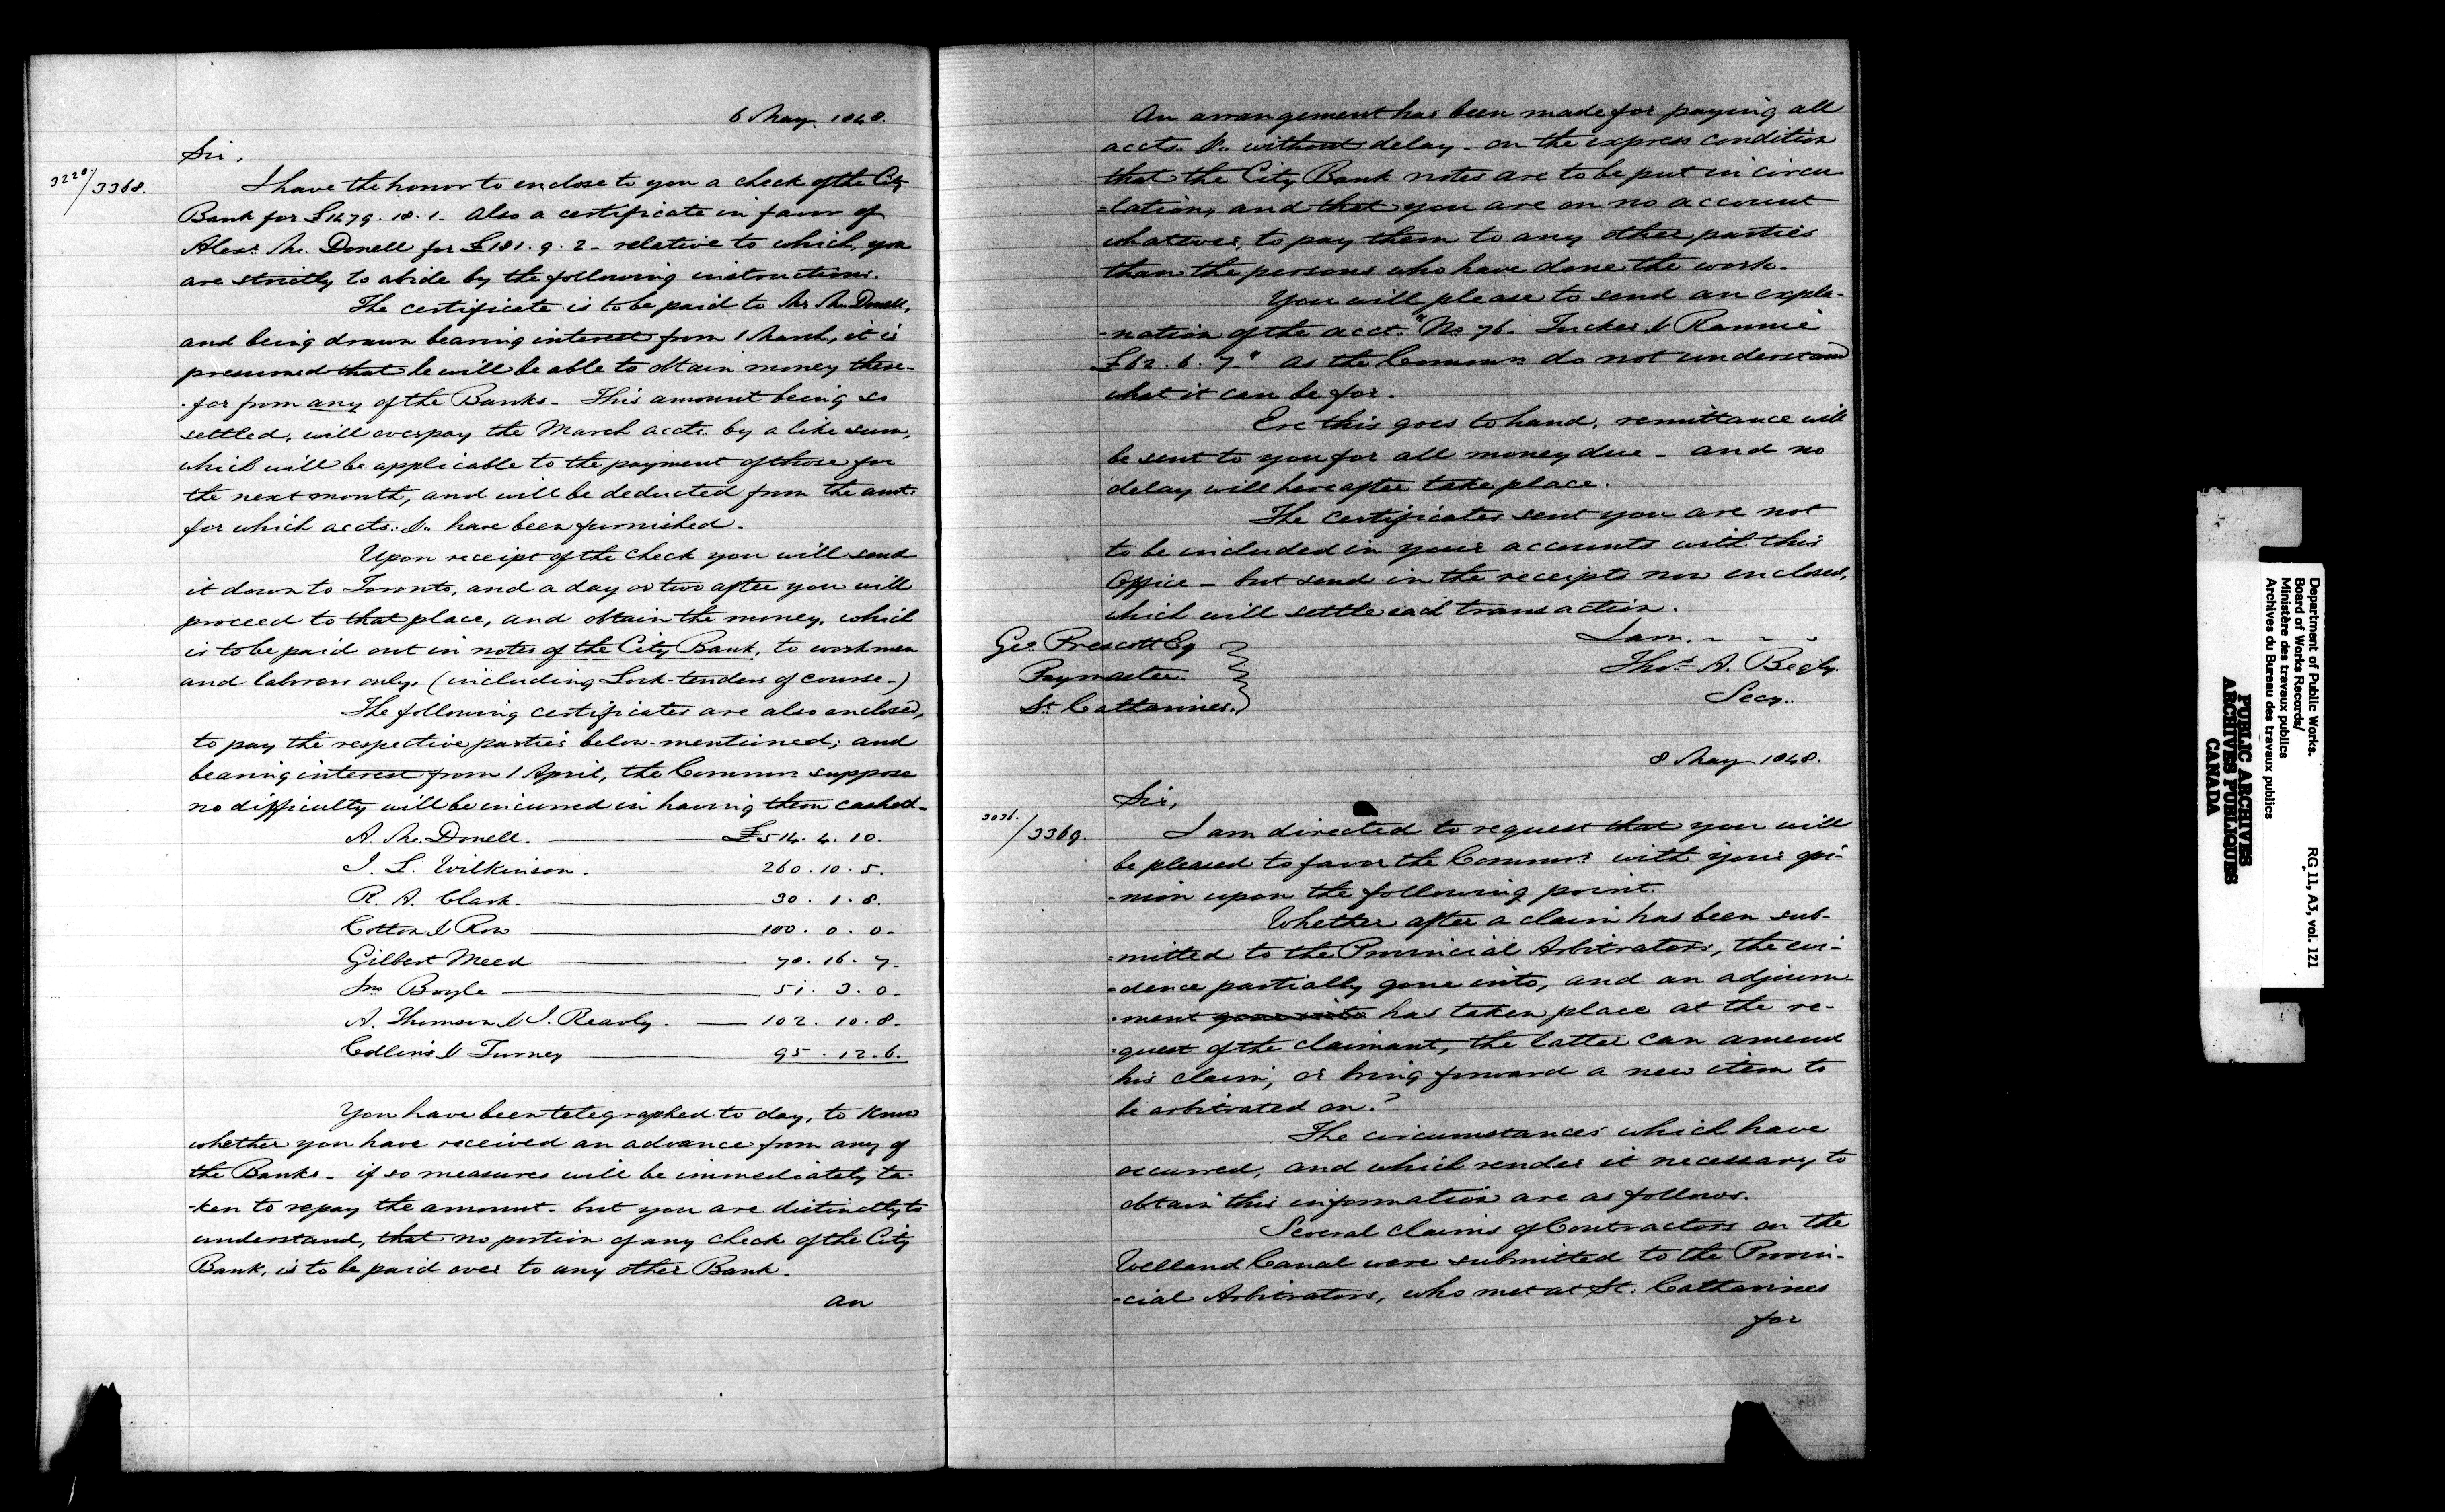 6 May 1848.
Sir,
3220/3368.
I have the honor to enclose to you a check of the City
Bank for £1479. 18. 1. Also a certificate in favor of
Alexr. Mc. Donell for £181. 9. 2 - relative to which, you
are strictly to abide by the following instructions.
The certificate is to be paid to Mr Mc. Donell,
and being drawn bearing interest from 1 March, it is
presumed that he will be able to obtain money there-
-for from any of the Banks - This amount being so
settled, will overpay the March accts. by a like sum,
which will be applicable to the payment of those for
the next month, and will be deducted from the amt.
for which accts. &. have been furnished.
Upon receipt of the check you will send
it down to Toronto, and a day or two after you will
proceed to that place, and obtain the money, which
is to be paid out in notes of the City Bank, to workmen
and laborers only. (including Lock-tenders of course -)
The following certificates are also enclosed,
to pay the respective parties below-mentioned; and
bearing interest from 1 April, the Commrs suppose
no difficulty will be incurred in having them cashed -
A. Mc. Donell. £514. 4. 10.
J. L. Wilkinson. 260. 10. 5.
R. A. Clark. 30. 1. 8.
Cotton & Row 100. 0. 0.
Gilbert Meed 70. 16. 7.
Jno Boyle 51. 3. 0.
A. Thomson & J. Rearly. 102. 10. 8.
Collins & Turney 95. 12. 6.
You have been telegraphed to day, to know
whether you have received an advance from any of
the Banks - if so measures will be immediately ta-
-ken to repay the amount - but you are distinctly to
understand, that no portion of any check of the City
Bank, is to be paid over to any other Bank.
An
An arrangement has been made for paying all
accts. &. without delay - on the express condition
that the City Bank notes are to be put in circu
=lation, and that you are on no account
whatever, to pay them to any other parties
than the persons who have done the work.
You will please to send an expla-
-nation of the acct. "No. 76. Tucker & Rannie
£62. 6. 7." as the Commrs do not understand
what it can be for.
Ere this goes to hand, remittance will
be sent to you for all money due - and no
delay will hereafter take place.
The certificates sent you are not
to be included in your accounts with this
Office - but send in the receipts now enclosed,
which will settle each transaction.
I am. - - -
Geo Prescott Eq
Thos. A. Begly.
Paymaster.
Secy.
St. Catharines.
8 May 1848.
Sir,
3036./3369.
I am directed to request that you will
be pleased to favor the Commrs. with your opi-
-nion upon the following point.
Whether after a claim has been sub-
=mitted to the Provincial Arbitrators, the evi-
-dence partially gone into, and an adjourn-
-ment gone into has taken place at the re-
-quest of the claimant, the latter can amend
his claim, or bring forward a new item to
be arbitrated on?
The circumstances which have
occurred, and which render it necessary to
obtain this information are as follows.
Several claims of Contractors on the
Welland Canal were submitted to the Provin-
-cial Arbitrators, who met at St. Catharines
for
Department of Public Works.
Board of Works Records/
Ministère des travaux publics
Archives du Bureau des travaux publics
RG 11, A3, vol. 121
PUBLIC ARCHIVES
ARCHIVES PUBLIQUES
CANADA